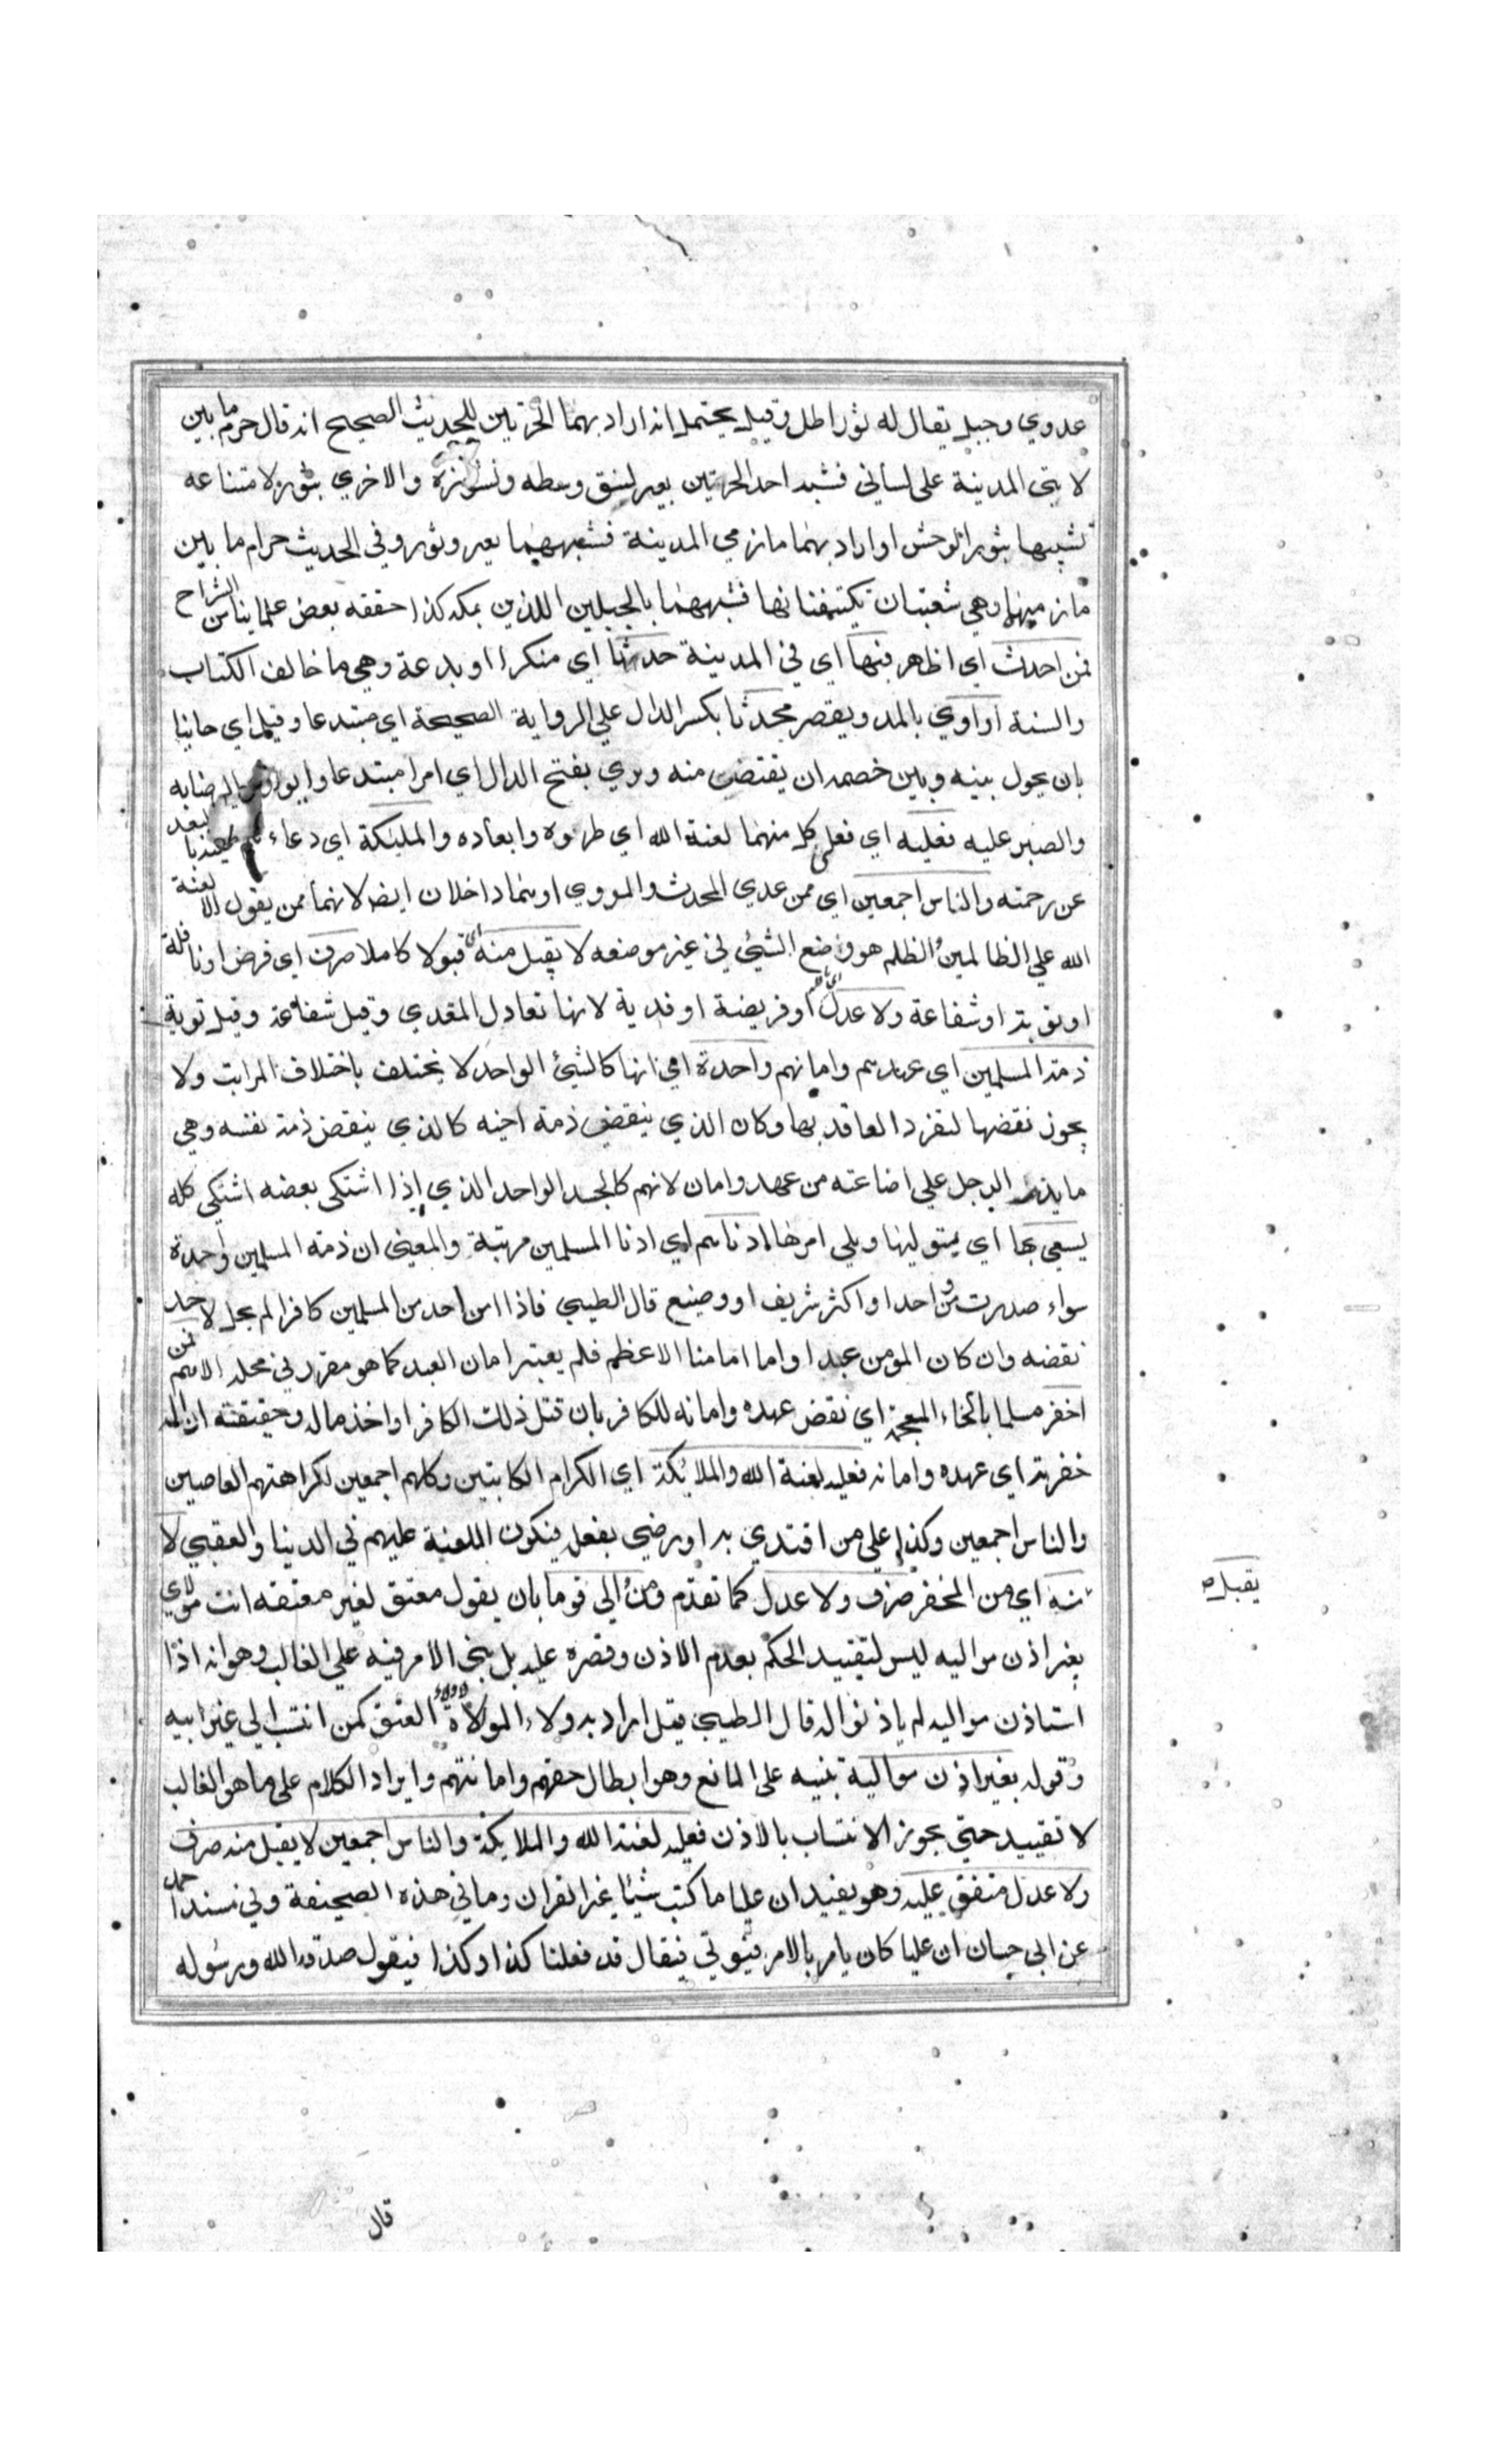 عدوي وجبل يقال له ثور اطل وقيل يحتمل انه اراد بهما الحرتين للحديث الصحيح انه قال حرم ما بين
لابتي المدينة على لساني فشبه احد الحرتين بعير لنتق وسطه ونشوزه والاخري بثور لامتناعه
تشبيها بثور الوحش او اراد بهما مازمي المدينة فشبههما بعير وثور وفي الحديث حرام ما بين
مازميها وهي شعبتان يكتنفنانها فشبههما بالجبلين اللذين بمكه كذا حققه بعض علماينا من الشراح
فمن احدث اي اظهر فيها اي في المدينة حدثا اي منكرا او بدعة وهي ما خالف الكتاب
والسنة او اوي بالمد ويقصر محدثا بكسر الدال علي الرواية الصحيحة اي مبتدعا وقيل اي جانيا
بان يحول بينه وبين خصمه ان يقتص منه وروي بفتح الدال اي امرا مبتدعا وايواوه الرضابه
والصبر عليه فعليه اي فعلى كل منهما لعنة الله اي طرده وابعاده والمليكة اي دعاءهم بالبعد
عن رحمته والناس اجمعين اي ممن عدي المحدث والمووي او هما داخلان ايضا لانهما ممن يقول الا لعنة
الله علي الظالمين والظلم هو وضع الشيئ في غير موضعه لا يقبل منه اي قبولا كاملا صرف اي فرض او نافلة
او توبة او شفاعة ولا عدل اي نافلة او فريضة او فدية لانها تعادل المفدي وقيل شفاعة وقيل توبة
ذمة المسلمين اي عهدهم وامانهم واحدة اي انها كالشيئ الواحد لا يختلف باختلاف المراتب ولا
يجوز نقضها لتفرد العاقد بها وكان الذي ينقض ذمة اخيه كالذي ينقض ذمة نفسه وهي
ما يذم الرجل علي اضاعته من عهد وامان لانهم كالجسد الواحد الذي اذا اشتكى بعضه اشتكي كله
يسعى بها اي يتوليها ويلي امرها ادناهم اي ادنا المسلمين مرتبة والمعنى ان ذمة المسلمين واحدة
سواء صدرت من واحد او اكثر شريف او وضيع قال الطيبي فاذا امن احد من المسلمين كافرا لم يحل لاحد
نقضه وان كان المومن عبدا واما امامنا الاعظم فلم يعتبر امان العبد كما هو مقرر في محله الاسم فمن
اخفر مسلما بالخاء المعجمة اي نقض عهده وامانه للكافر بان قتل ذلك الكافر او اخذ ماله وحقيقته ازاله
خفرته اي عهده وامانه فعليه لعنة الله والملائكة اي الكرام الكاتبين وكلهم اجمعين لكراهتهم العاصين
والناس اجمعين وكذا على من اقتدي به او رضي بفعله فيكون اللعنة عليهم في الدنيا والعقبي لا
يقبل
منه اي من المخفر صرف ولا عدل كما تقدم ومن والي قوما بان يقول معتق لغير معتقه انت مولاي
بغير اذن مواليه ليس لتقييد الحكم بعدم الاذن وقصره عليه بل بنى الامر فيه علي الغالب وهو انه اذا
استاذن مواليه لم ياذنوا له قال الطيبي قيل اراد به ولاء الموالاة لا ولاء العتق كمن انتسب الي غير ابيه
وقوله بغير اذن مواليه تنبيه على المانع وهو ابطال حقهم وامانتهم وايراد الكلام على ما هو الغالب
لا تقييد حتي يجوز الانتساب بالاذن فعليه لعنة الله والملايكة والناس اجمعين لا يقبل منه صرف
ولا عدل متفق عليه وهو يفيد ان عليا ما كتب شيئا غير القران وما في هذه الصحيفة وفي مسند احمد
عن ابي حسان ان عليا كان يامر بالامر فيوتي فيقال قد فعلنا كذا وكذا فيقول صدق الله ورسوله
قال